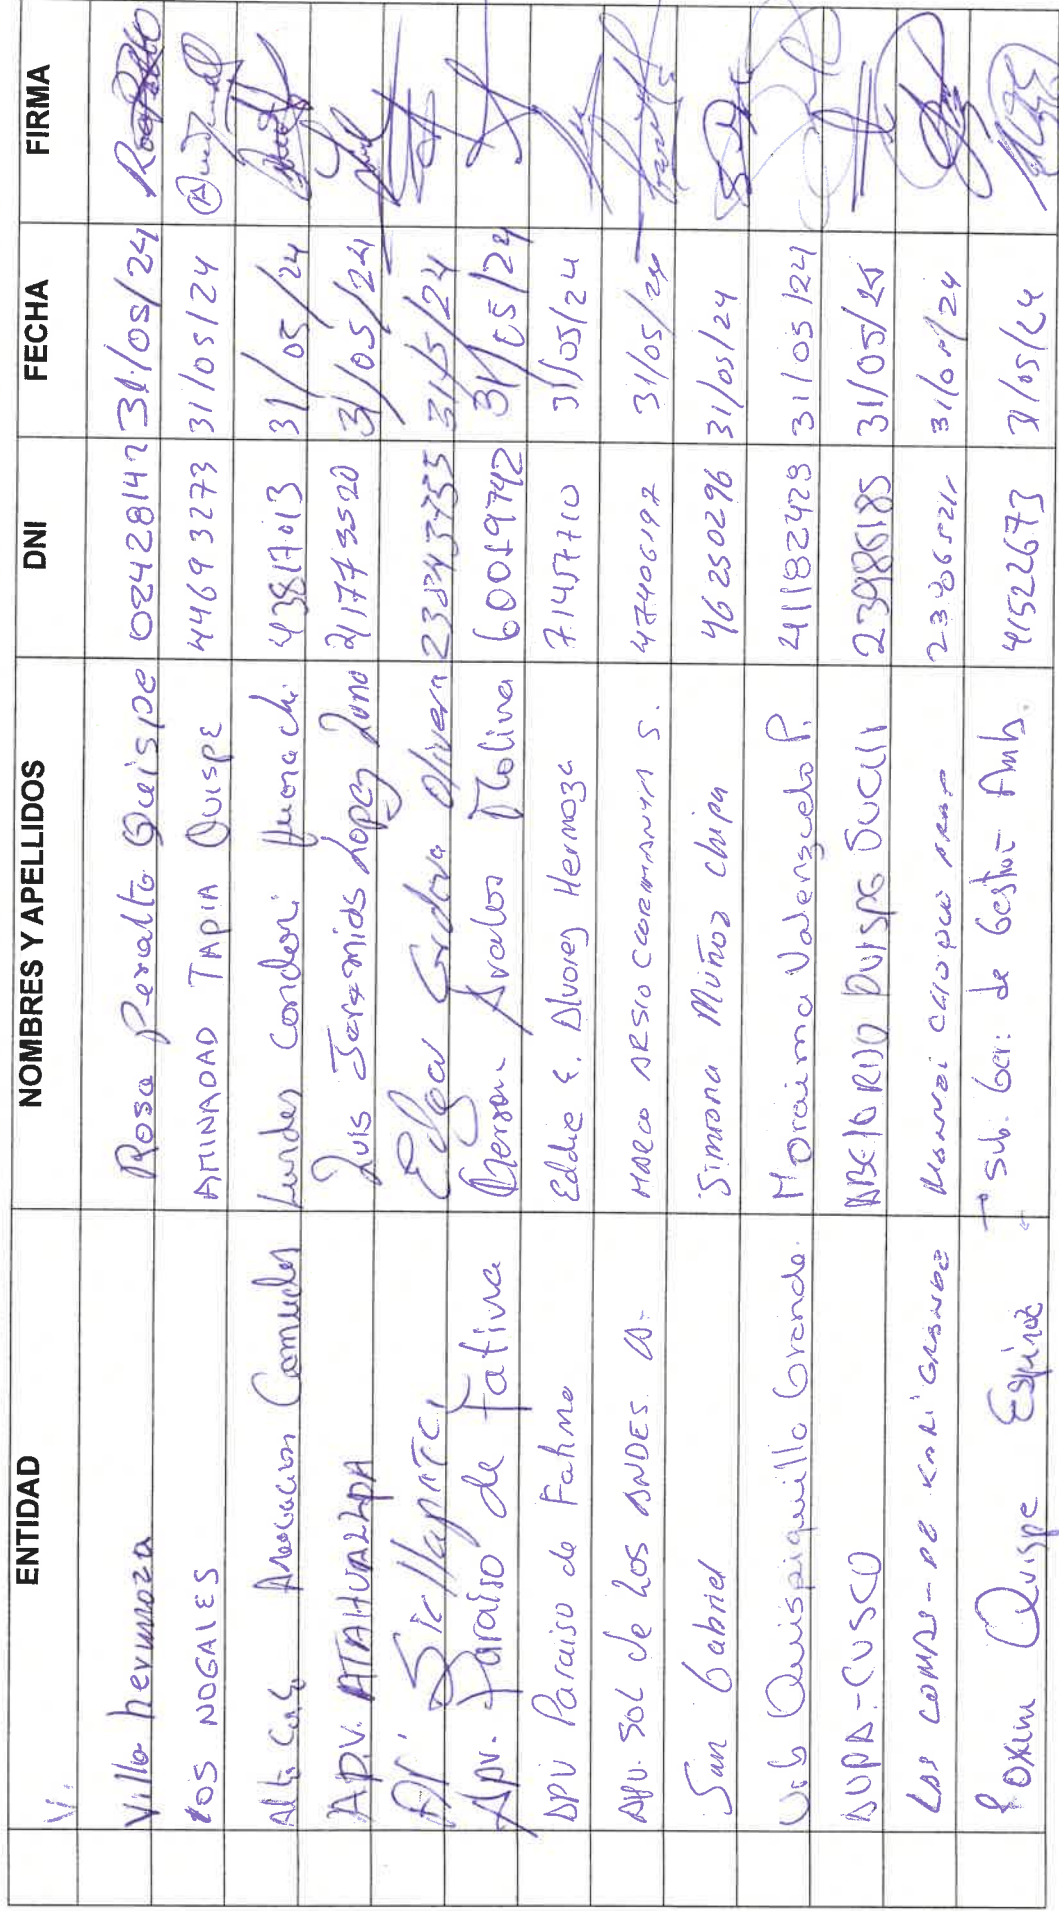 ENTIDAD NOMBRES Y APELLIDOS DNI FECHA FIRMA
V.
Villa hermoza Rosa Peralta Quispe 02428142 31/05/24
LOS NOGALES AMINADAD TAPIA QUISPE 44693273 31/05/24
Asociacion Lurdes Condori Huarachi 43817013 31/05/24
APV. ATAHUALLPA Luis Jeremias Lopez Luna 21773520 31/05/24
Sicllapata Edgar Cordova Olivera 31/5/24
Apv. Paraiso de Fatima Avalos Molina 60019742 31/05/24
APV Paraiso de Fatima Eddie E. Alvarez Hermoza 71457710 31/05/24
APV. SOL de LOS ANDES MARCO S. 47406192 31/05/24
San Gabriel Simiona Muñoz chipa 46250296 31/05/24
Urb Quispiquilla Grande. Moraima Valenzuela P. 41182429 31/05/24
CUSCO QUISPE SUCLLI 23986185 31/05/24
LAS LOMAS - DE KARI GRANDE 31/05/24
Quispe Espinoza → Sub. Ger: de Gestion Amb. 41522673 31/05/24